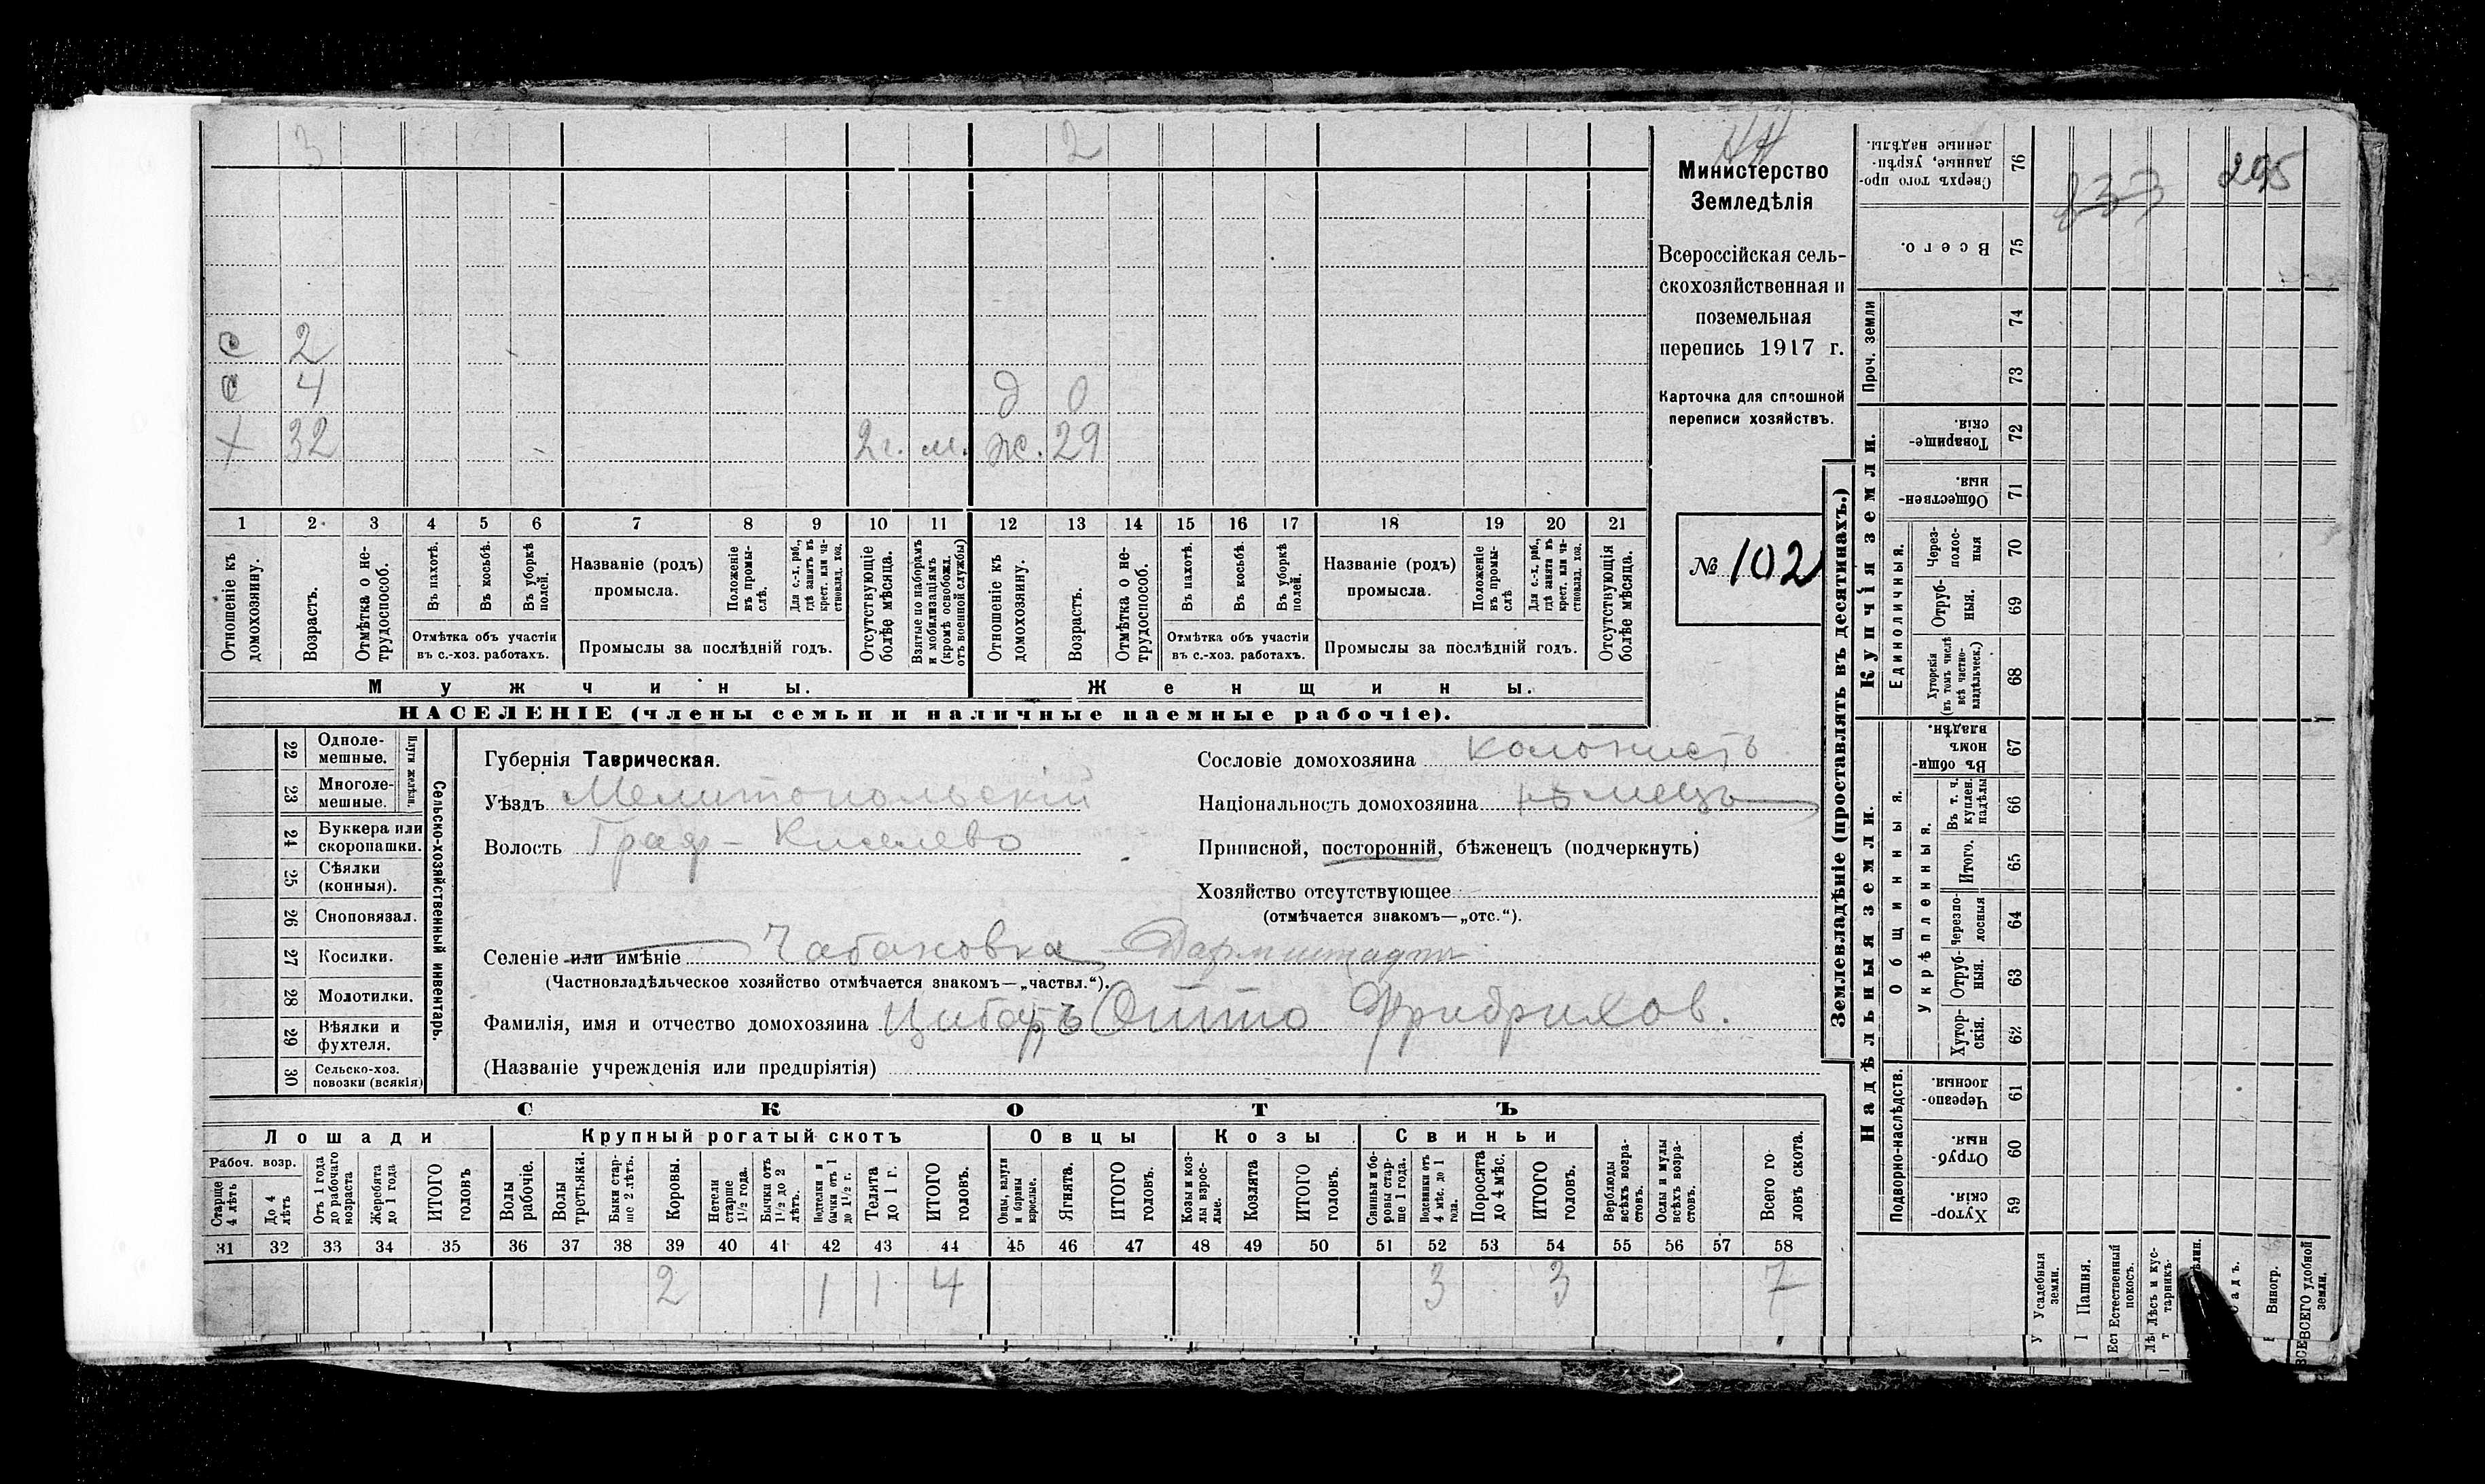 3 2
с 2
с 4 д 0
х 32 2 г. м. ж. 29
1 2 3 4 5 6 7 8 9 10 11 12 13 14 15 16 17 18 19 20 21
Отношеніе къ домохозяину.
Возрастъ.
Отмѣтка о не-трудоспособ.
Въ пахотѣ.
Въ косьбѣ.
Въ уборкѣ полей.
Отмѣтка объ участіи
въ с.-хоз. работахъ.
Названіе (родъ)
промысла.
Положеніе въ промы-слѣ.
Для с.-х. раб., гдѣ занятъ въ крест. или ча-стновлад. хоз.
Промыслы за послѣдній годъ.
Отсутствующіе болѣе мѣсяца.
Взятые по наборамъ и мобилизаціямъ (кромѣ освобожд. отъ военной службы)
Отношеніе къ домохозяину.
Возрастъ.
Отмѣтка о не-трудоспособ.
Въ пахотѣ.
Въ косьбѣ.
Въ уборкѣ полей.
Отмѣтка объ участіи
въ с.-хоз. работахъ.
Названіе (родъ)
промысла.
Положеніе въ промы-слѣ
Для с.-х. раб., гдѣ занята въ крест. или ча-стновлад. хоз.
Промыслы за послѣдній годъ.
Отсутствующія болѣе мѣсяца.
Мужчины. Женщины.
НАСЕЛЕНІЕ (члены семьи и наличные наемные рабочіе).
Министерство
Земледѣлія
Всероссійская сель-
скохозяйственная и
поземельная
перепись 1917 г.
Карточка для сплошной
переписи хозяйствъ.
№ 102
22 Одноле-мешные.
23 Многоле-мешные.
Плуги желѣзн.
24 Буккера или скоропашки.
25 Сѣялки (конныя).
26 Сноповязал.
27 Косилки.
28 Молотилки.
29 Вѣялки и фухтеля.
30 Сельско-хоз. повозки (всякія)
Сельско-хозяйственный инвентарь.
Губернія Таврическая.
Уѣздъ Мелитопольскій
Волость Граф-Киселево
Сословіе домохозяина колонистъ
Національность домохозяина нѣмецъ
Приписной, посторонній, бѣженецъ (подчеркнуть)
Хозяйство отсутствующее
(отмѣчается знакомъ—„отс.“).
Селеніе или имѣніе Чабановка Дармштадтъ
(Частновладѣльческое хозяйство отмѣчается знакомъ—„частвл.“).
Фамилія, имя и отчество домохозяина Отто Фридрихов.
(Названіе учрежденія или предпріятія)
СКОТЪ
Лошади Крупный рогатый скотъ Овцы Козы Свиньи
Рабоч. возр.
Старше 4 лѣтъ
До 4 лѣтъ
Отъ 1 года до рабочаго возраста
Жеребята до 1 года
ИТОГО головъ
Волы рабочіе.
Волы третьяки.
Быки стар-ше 2 лѣтъ.
Коровы.
Нетели старше 1½ года.
Бычки отъ 1½ до 2 лѣтъ.
Подтелки и бычки отъ 1 до 1½ г.
Телята до 1 г.
ИТОГО головъ.
Овцы, валухи и бараны взрослые.
Ягнята.
ИТОГО головъ.
Козы и коз-лы взрос-лые.
Козлята
ИТОГО головъ.
Свиньи и бо-ровы стар-ше 1 года.
Подсвинки отъ 4 мѣс. до 1 года.
Поросята до 4 мѣс.
ИТОГО головъ.
Верблюды всѣхъ возра-стовъ.
Ослы и мулы всѣхъ возра-стовъ.
Всего го-ловъ скота.
31 32 33 34 35 36 37 38 39 40 41 42 43 44 45 46 47 48 49 50 51 52 53 54 55 56 57 58
2 1 1 4 3 3 7
Землевладѣніе (проставлять въ десятинахъ.)
Купчія земли.
Надѣльныя земли.
Сверхъ того про-данные, укрѣп-ленные надѣлы. 76
837 295
Всего. 75
Проч. земли 74 73
Товарище-скія. 72
Обществен-ныя 71
Единоличныя.
Через-полос-ныя 70
Отруб-ныя. 69
Хуторскія (въ томъ числѣ всѣ частно-владѣльческ.) 68
Общинныя.
Въ общи-номъ владѣн. 67
Укрѣпленныя.
Въ т. ч. куплен. надѣлы 66
Итого. 65
Черезпо-лосныя 64
Отруб-ныя. 63
Хутор-скія. 62
Подворно-наслѣдств.
Черезпо-лосныя. 61
Отруб-ныя. 60
Хутор-скія. 59
Усадебныя земли.
Пашня.
Естественный покосъ.
Лѣсъ и кус-тарникъ.
Виногр.
ВСЕГО удобной земли.